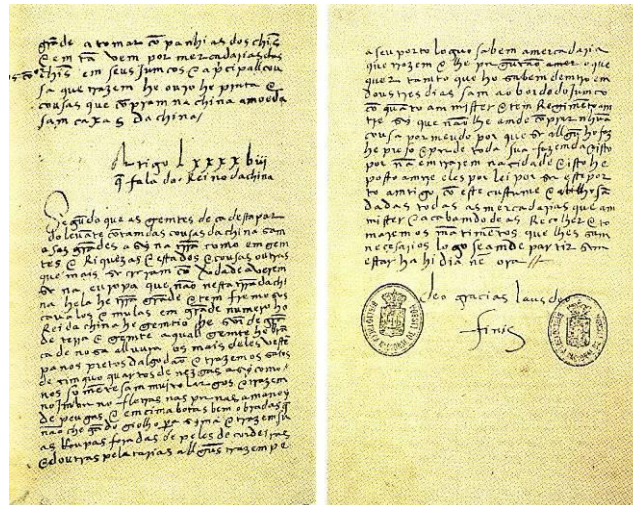 gramde a tomar cõpanhias dos chĩs
& em tã vem por mercadarias dos
chĩs em seus Juncos & a primcipall cou
sa que trazem he ouro he prata &
cousas que cõpram na china a moeda
sam caxas da china /
Artigo Lxxxxbiij
q̃ fala do Reino da china
Segũdo que as gemtes de ca desta par
do levãte cõtam das cousas da china sam
asas grãdes asy na trra como em gem
tes & Riquezas & estados & cousas outras
que mais se cririam cõ verdade averem
se na europa que não nesta trra da chi
na hela he trra grãde & tem fremosos
cavalos & mulas em grãde numero ho
Rei da china he gemtio sõr de
de terra & gemte a quall gemte he brã
ca de nosa alluura os mais deles veste
panos pretos dalgodam & trazemos saios
de cimquo quartos de nezgas asy como
nos so mẽte sam muito largos & trazem
no Inverno felltros nas pernas a modo
de peugas & em cima botas bem obradas q̃
não chegão do giolho pa sima & trazem su
as Roupas foradas de peles de cordeiras
& doutras pelatarias allgũs trazem pe
a seu porto loguo sabem a mercadaria
que trazem & he a mer o que
quer tamto que ho sabem demtro em
dous tres dias sam ao bordo do Junco
cõ quãto am mister & tem Regimẽto am
tre si que não lhe amde cõprar nhũa
cousa por meudo por que se allgũ ho faz
he preso & perde toda sua fazemda & isto
por nã emtrarem na cidade & isto he
posto amtre eles por lei por ser este por
to amtigo cõ este custume &
dadas todas as mercadarias que am
mister & acabamdo de as Recolher & to
marem os mãtimẽtos que lhes sam
necesairos logo se amde partir sem
estar hahi dia nẽ ora //
deo gracias laus deo
finis